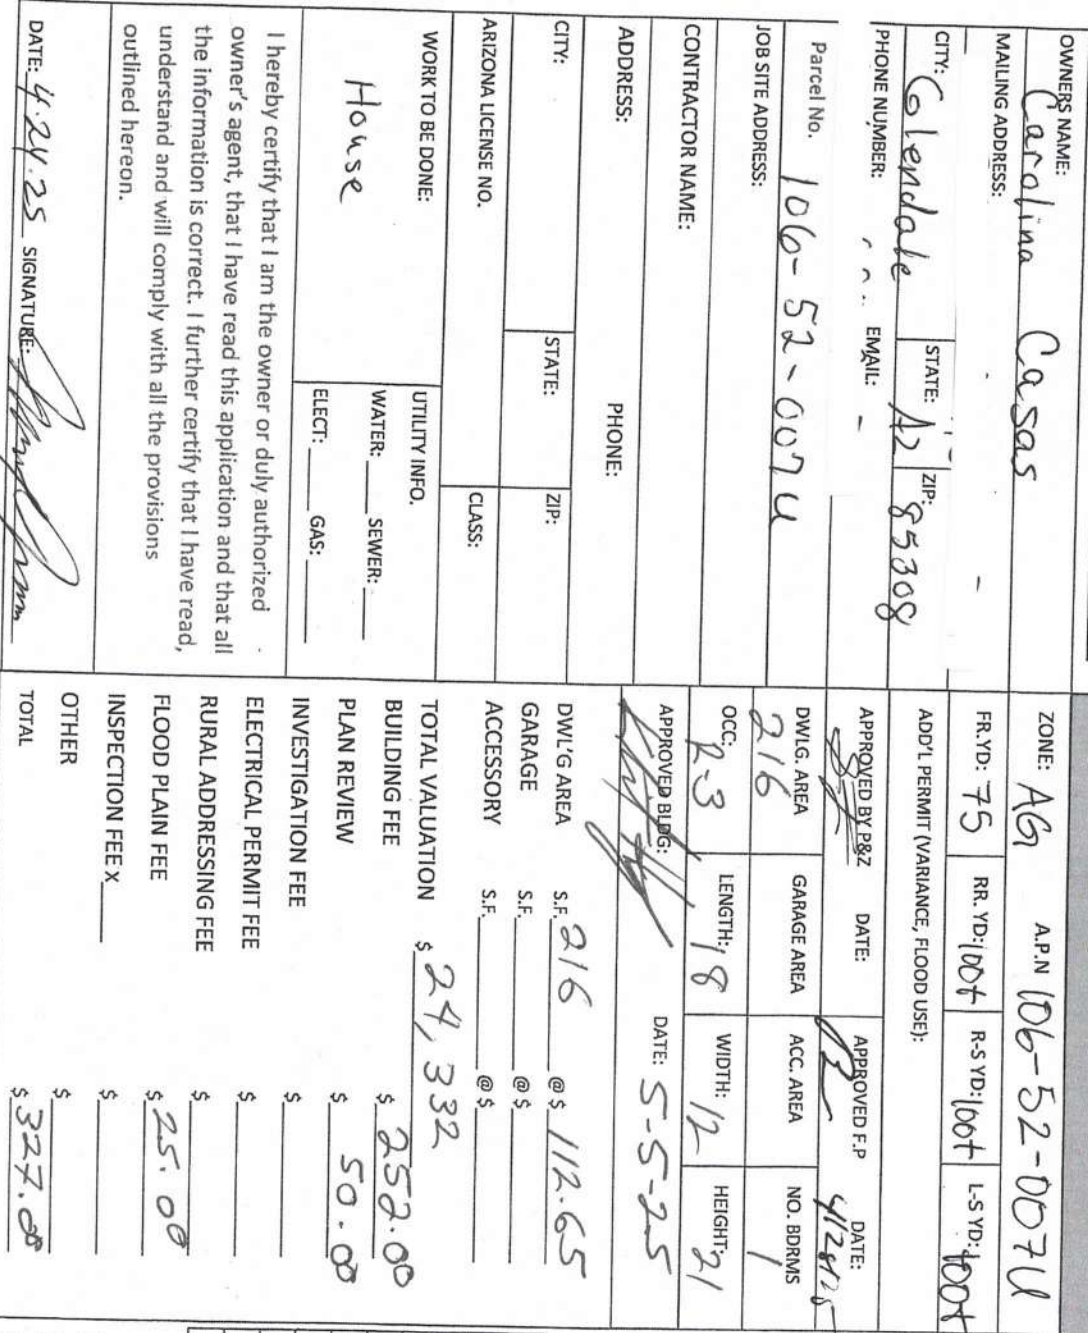 OWNERS NAME:
Carolina Casas
MAILING ADDRESS:
CITY: Glendale STATE: AZ ZIP: 85308
PHONE NUMBER: EMAIL:
Parcel No. 106-52-007U
JOB SITE ADDRESS:
CONTRACTOR NAME:
ADDRESS: PHONE:
CITY: STATE: ZIP:
ARIZONA LICENSE NO. CLASS:
WORK TO BE DONE:
House
UTILITY INFO.
WATER: ____ SEWER: ____
ELECT: ____ GAS: ____
I hereby certify that I am the owner or duly authorized
owner's agent, that I have read this application and that all
the information is correct. I further certify that I have read,
understand and will comply with all the provisions
outlined hereon.
DATE: 4.24.25 SIGNATURE:
ZONE: AG A.P.N 106-52-007U
FR.YD: 75 RR. YD: 100+ R-S YD: 100+ L-S YD: 100+
ADD'L PERMIT (VARIANCE, FLOOD USE):
APPROVED BY P&Z DATE: APPROVED F.P DATE: 4/28/25
DWLG. AREA GARAGE AREA ACC. AREA NO. BDRMS
216 1
OCC: R-3 LENGTH: 18 WIDTH: 12 HEIGHT: 21
APPROVED BLDG: DATE: 5-5-25
DWL'G AREA S.F. 216 @ $ 112.65
GARAGE S.F. ____ @ $ ____
ACCESSORY S.F. ____ @ $ ____
TOTAL VALUATION $ 24,332
BUILDING FEE $ 252.00
PLAN REVIEW $ 50.00
INVESTIGATION FEE $
ELECTRICAL PERMIT FEE $
RURAL ADDRESSING FEE $
FLOOD PLAIN FEE $ 25.00
INSPECTION FEE X ____ $
OTHER $
TOTAL $ 327.00